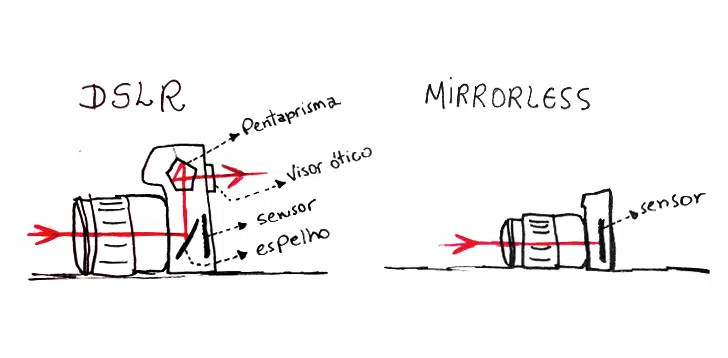 DSLR
Pentaprisma
Visor ótico
sensor
espelho
MiRRORLESS
sensor